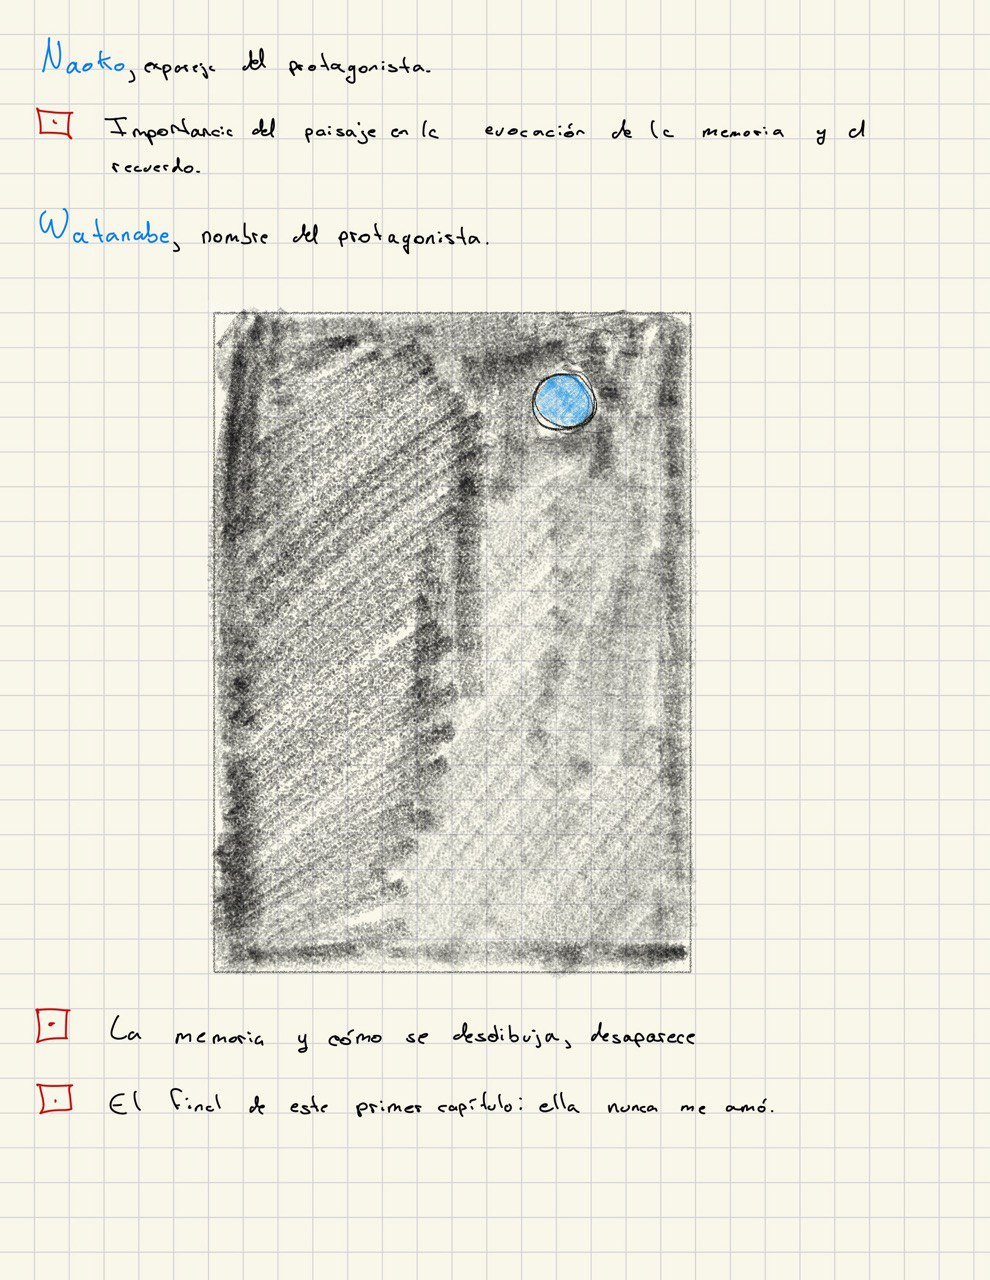 Naoko, expareja del protagonista.
Importancia del paisaje en la evocación de la memoria y el
recuerdo.
Watanabe, nombre del protagonista.
La memoria y cómo se desdibuja, desaparece
El final de este primer capítulo: ella nunca me amó.